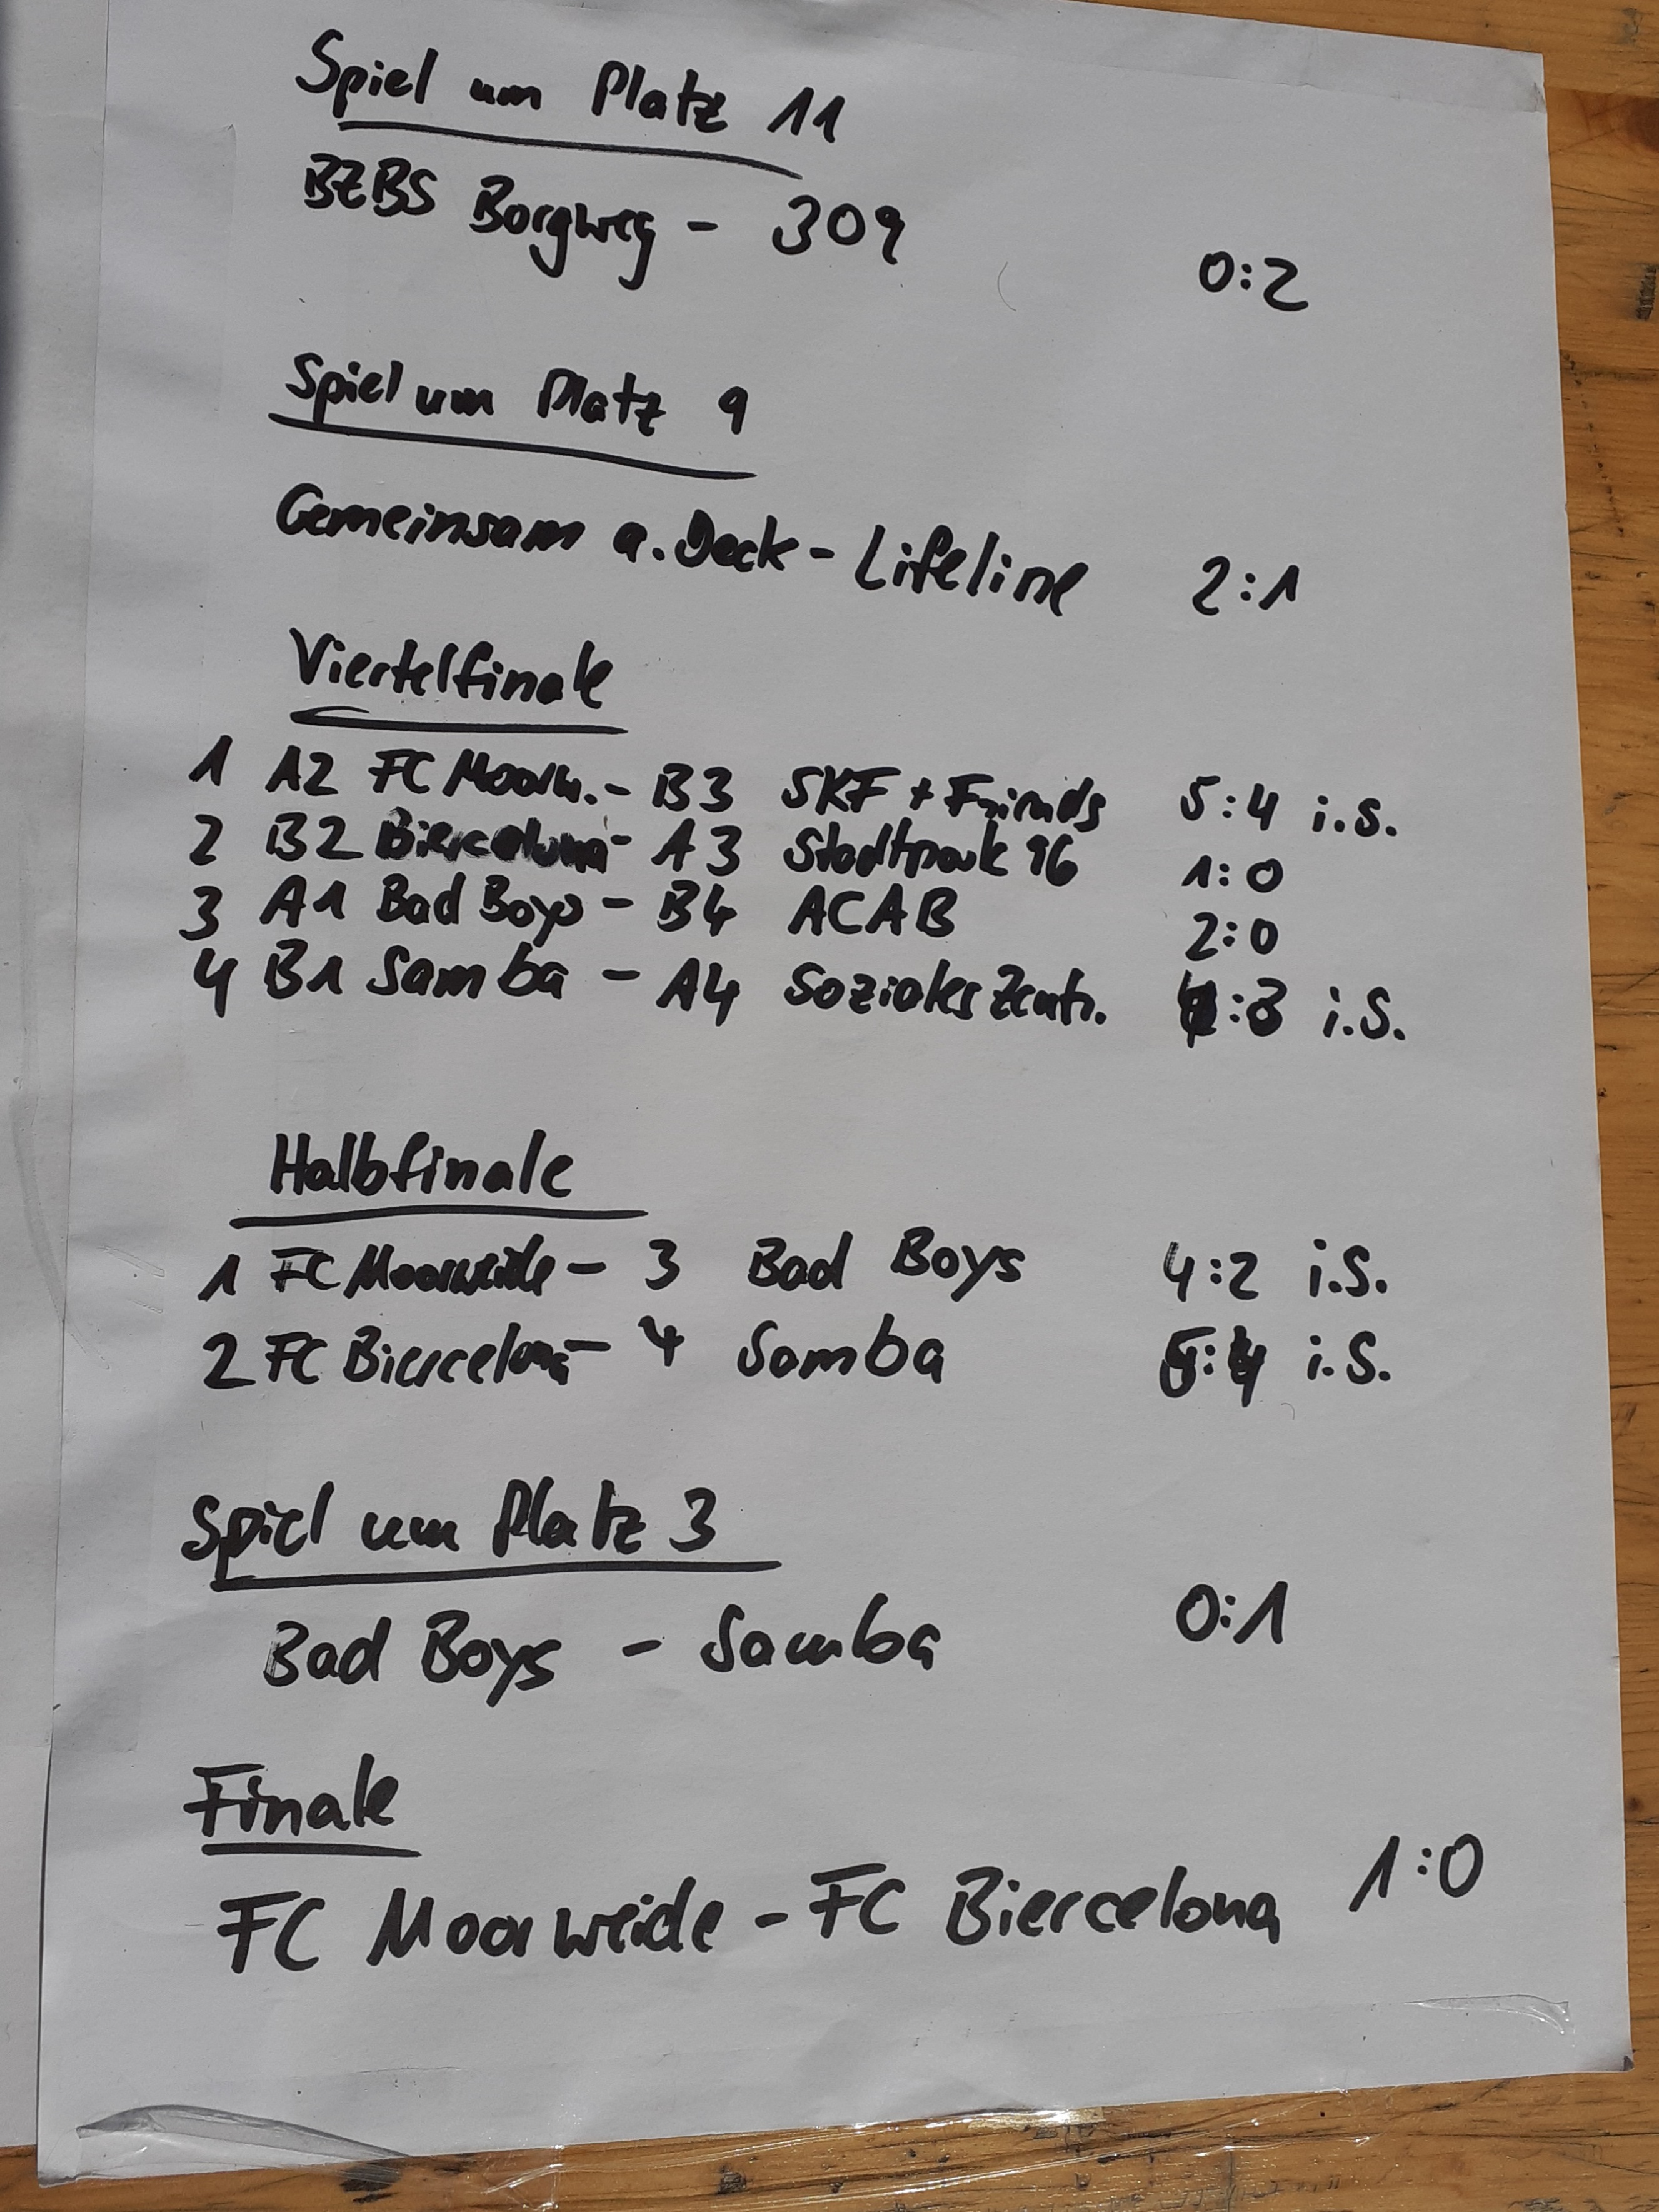 Spiel um Platz 11
BZBS Borgweg - 309
0:2
Spiel um Platz 9
Gemeinsam a. Deck - Lifeline 2:1
Viertelfinale
1 A2 FC Moorw. - B3 SKF + Friends 5:4 i.S.
2 B2 Biercelona - A3 Stadtpark 96 1:0
3 A1 Bad Boys - B4 ACAB 2:0
4 B1 Samba - A4 Soziales Zentr. 4:3 i.S.
Halbfinale
1 FC Moorweide - 3 Bad Boys 4:2 i.S.
2 FC Biercelona - 4 Samba 5:4 i.S.
Spiel um Platz 3
Bad Boys - Samba 0:1
Finale
FC Moorweide - FC Biercelona 1:0